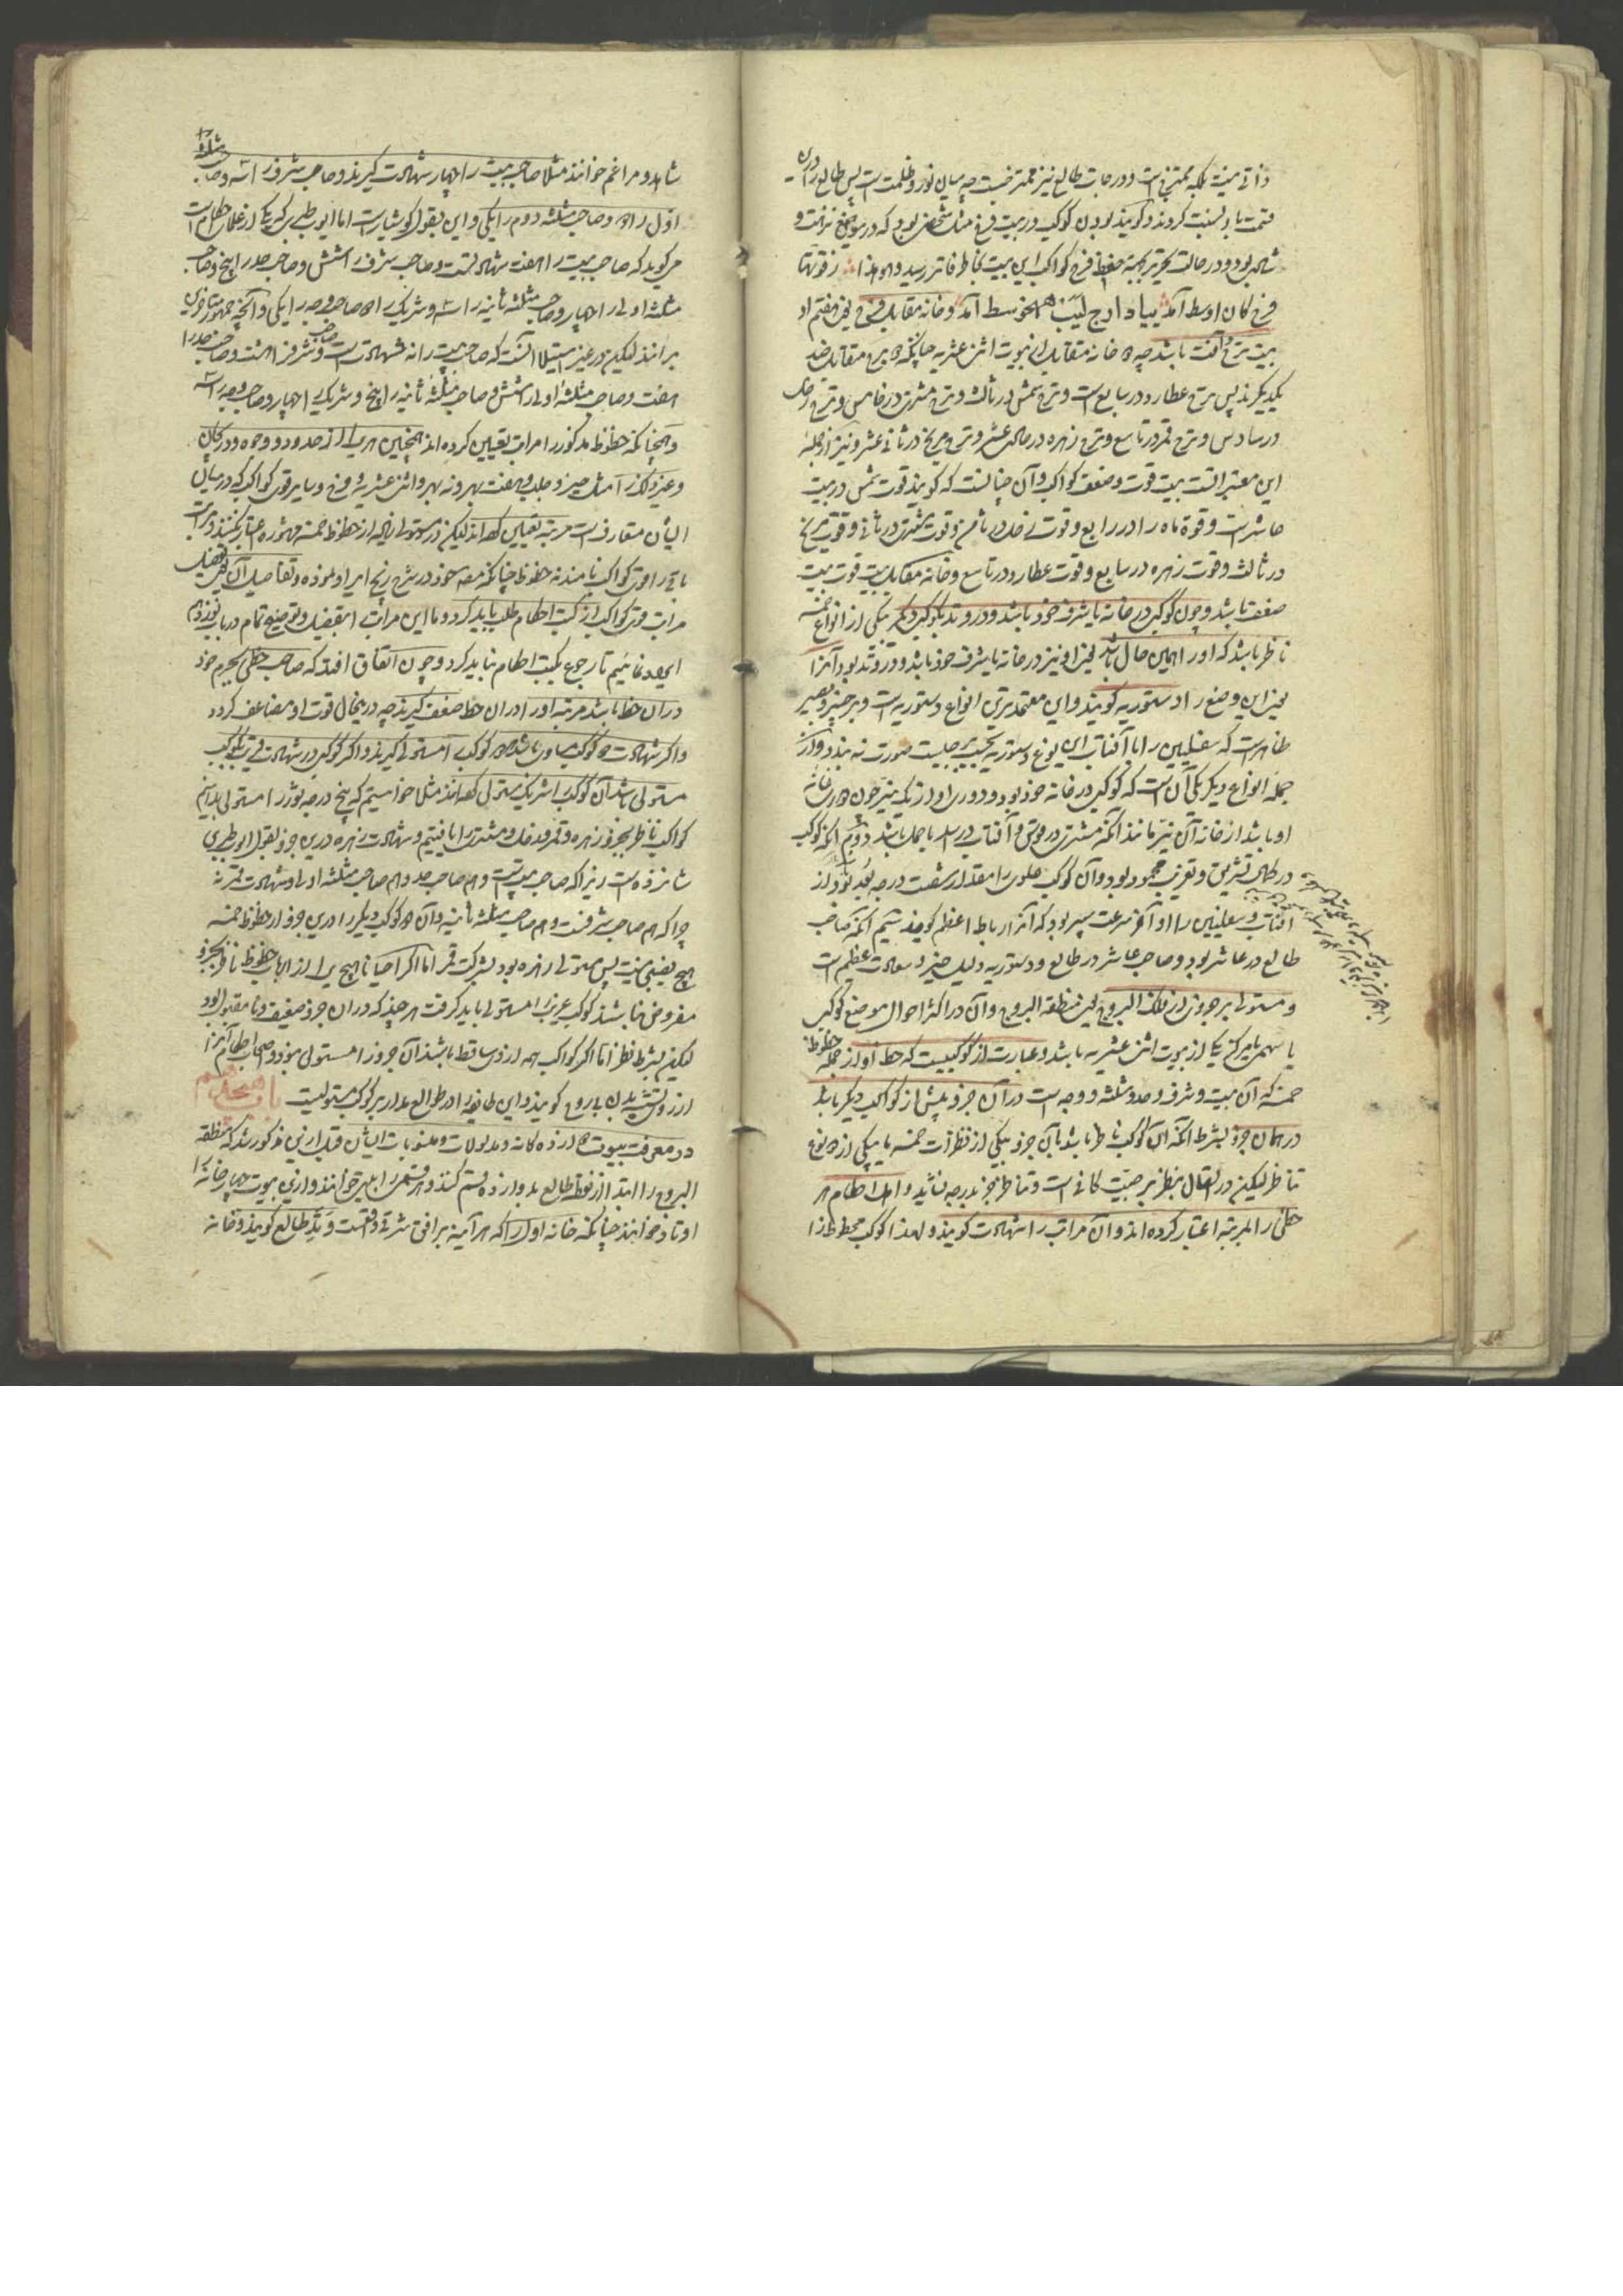 ذاتی نیست بلکه ممتزج است و درجات طالع نیز ممتزجست چه میان نور و ظلمت است پس طالع را درین
قسمت باو نسبت کردند و گویند بودن کوکب در بیت فرح مثابه شخصی بود که در موضع نزهت و
شادی بود و در حالت تحریر بجهة حفظ فرح کواکب این بیت بخاطر فاتر رسید
فرح کان اوسط آمد وخانه مقابل فرح یعنی هفتم او
بیت ترح آفت باشد چه خانه مقابل از بیوت اثنی عشریه چنانکه برج مقابل ضد
یکدیگرند پس ترح عطارد در سابع است و ترح شمس در ثالث و ترح مشتری در خامس و ترح زحل
در سادس و ترح قمر در تاسع و ترح زهره در حادی عشر و ترح مریخ در ثانی عشر و نیز از جمله
این معتبرات بیت قوت و ضعف کواکب و آن چنانست که گویند قوت شمس در بیت
عاشر است و قوة ماه در رابع و قوت زحل در ثامن و قوت مشتری در ثانی و قوت مریخ
در ثالث و قوت زهره در سابع و قوت عطارد در تاسع و خانه مقابل بیت قوت بیت
ضعف باشد و چون کوکبی در خانه یا شرف خود باشد و در وتد و کوکبی دیگر بیکی از انواع خمسه
ناظر باشد که او را همین حال باشد یعنی او نیز در خانه یا شرف خود باشد و در وتد بود آنرا
یعنی این وضع را دستوریه گویند و این معتمدترین انواع دستوریه است و بر خبیر و بصیر
ظاهرست که سفلیین را با آفتاب این نوع دستوریه بحسب صورت نه بندد و از
جمله انواع دیگر یکی آن است که کوکبی در خانه خود بود و دوری او از یک نیر چون دوری خانه
او باشد از خانه آن نیر مانند آنکه مشتری در قوس و آفتاب در اسد یا حمل باشد دوم آنکه کوکب
در حال تشریق و تغریب محمود بود و آن کوکب علوی را مقدار شصت درجه بعد بود از
افتاب و سفلیین را اوآخر سرعت سیر بود که آنرا رباط اعظم گویند سیم آنکه صاحب
طالع در عاشر بود و صاحب عاشر در طالع و دستوریه دلیل خیر و سعادت عظیم است
و مستولی بر جزوی از فلک البروج یعنی منطقه البروج و آن در اکثر احوال موضع کوکبی
یا سهمی یا مرکز یکی از بیوت اثنی عشریه باشد عبارت از کوکبیست که حظ او از جمله حظوظ
خمسه که آن بیت و شرف و حد و مثلثه و وجه است در آن جزو بیش از کواکب دیگر باشد
در همان جزو بشرط آنکه آن کوکب ناظر باشد بآن جزو بیکی از نظرات خمسه یا بیکی از دو نوع
تناظر لیکن در اتصال بنظر برجیت کافی است و تناظر جز بدرجه نشاید و اهل احکام هر
حظی را مرتبه اعتبار کرده اند و آن مراتب را شهادت گویند و لهذا کوکب محظوظ را
شاهد و مزاعم خوانند مثلا صاحب بیت را چهار شهادت گیرند و صاحب شرف را سه و صاحب مثلثه
اول را دو و صاحب مثلثه دوم را یکی و این بقول کوشیارست اما ابو طبری که یکی از علمای احکام است
می گوید که صاحب بیت را هفت شهادتست و صاحب شرف را شش و صاحب حد را پنج و صاحب
مثلثه اولی را چهار و صاحب مثلثه ثانیه را سه و شریک را دو و صاحب وجه را یکی و آنچه جمهور متأخرین
برانند لیکن در غیر استیلا آنست که صاحب بیت را نه شهادت است و صاحب شرف را هشت و صاحب حد را
هفت و صاحب مثلثه اولی را شش و صاحب مثلثه ثانیه را پنج و شریک را چهار و صاحب وجه را سه
و همچنانکه حظوظ مذکور را مراتب تعیین کرده اند همچنین هر یک را از حدود و وجوه و دریجان
و غیر ذلک از امثال حیز و حلب و هفت بهر و نه بهر و اثنی عشریه و فرح و سایر قوی کواکب که در میان
ایشان متعارف است مرتبه تعیین کرده اند لیکن در مستولی الا از حظوظ خمسه مشهوره اعتبار نکنند و مراتب
باقی را قوی کواکب نامند نه حظوظ چنانکه مصنف خود در شرح زیج ایراد نموده و تفاصیل آن یعنی تفصیل
مراتب قوی کواکب از کتب احکام طلب باید کرد و ما این مراتب را بتفصیل و توضیح تمام در باب نوزدهم
ایراد نمائیم تا رجوع بکتب احکام نباید کرد و چون اتفاق افتد که صاحب حظی بجرم خود
در آن حظ باشد مرتبه او را در آن حظ ضعف گیرند چه درینحال قوت او مضاعف گردد
و اگر شهادت دو کوکب مساوی باشد هر دو کوکب را مستولی گیرند و اگر کوکبی در شهادت قریب بکوکب
مستولی باشد آن کوکب را شریک مستولی گفته اند مثلا خواستیم که پنج درجه ثور را مستولی بدانیم
کواکب ناظر بجزو زهره و قمر و زحل و مشتری را یافتیم و شهادت زهره درین جزو بقول ابو طبری
شانزده است زیرا که صاحب بیت است و هم صاحب حد و هم صاحب مثلثه اولی و شهادت قمر نه
چرا که هم صاحب شرفست و هم صاحب مثلثه ثانیه و آن دو کوکب دیگر را درین جزو از حظوظ خمسه
هیچ نصیبی نیست پس مستولی زهره بود بشرکت قمر اما اگر احیانا هیچ یک از ارباب حظوظ ناظر بجزو
مفروض نباشند کوکب غریب را مستولی باید گرفت هر چند که در آن جزو ضعیف و نامقبول بود
لیکن بشرط نظر اما اگر کواکب همه از وی ساقط باشند آن جزو را مستولی نبود و اصحاب احکام آنرا
از روی تشبیه بدن بی روح گویند و این طایفه را در طوالع مدار بر کوکب مستولیست باب هجدهم
در معرفت بیوت دوازده گانه و مدلولات و منسوبات ایشان قبل ازین مذکور شد که منطقه
البروج را ابتدا از نقطه طالع بدوازده قسم کنند و هر قسمی را بیتی خوانند و ازین بیوت چهار خانه را
اوتاد خوانند چنانکه خانه اول را که هر آینه بر افق شرقی واقعست وتد طالع گویند و خانه